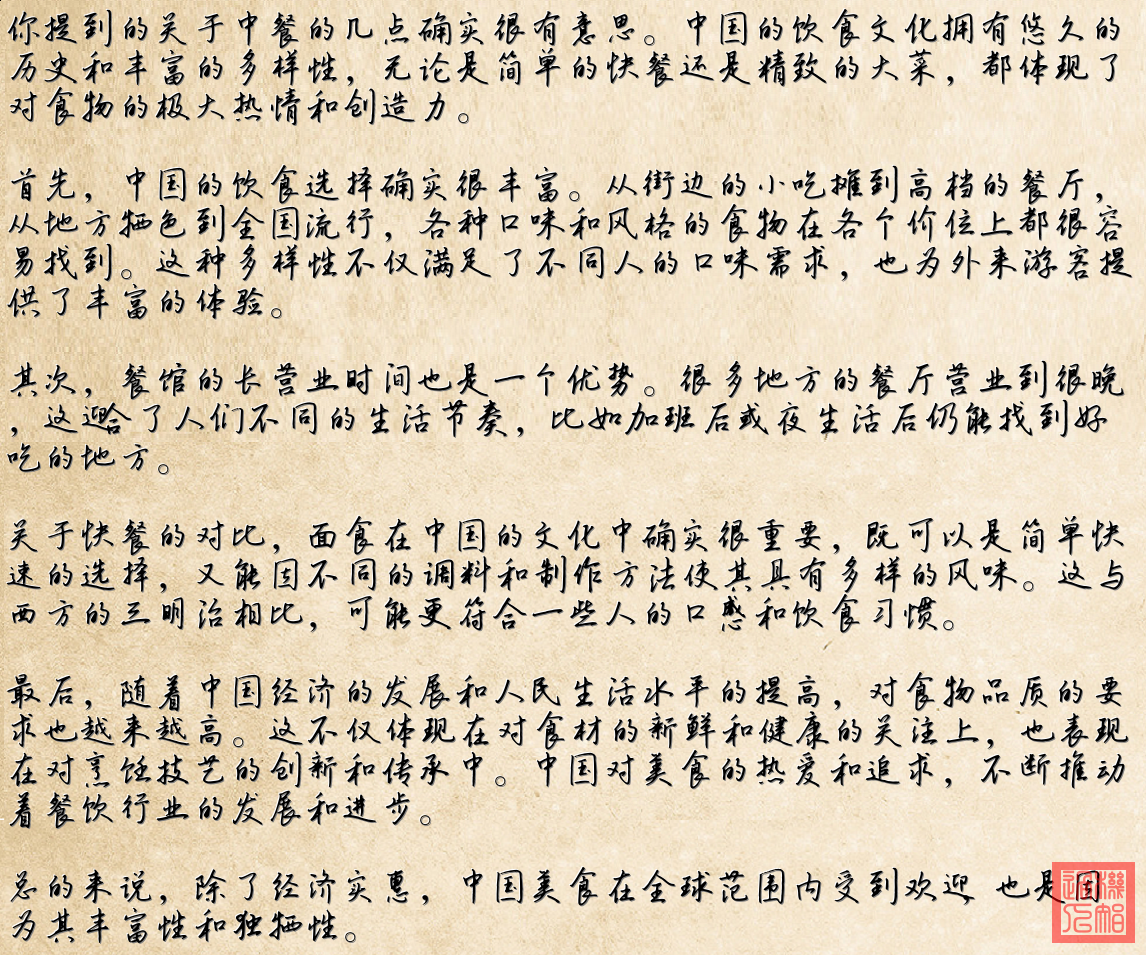 你提到的关于中餐的几点确实很有意思。中国的饮食文化拥有悠久的
历史和丰富的多样性，无论是简单的快餐还是精致的大菜，都体现了
对食物的极大热情和创造力。
首先，中国的饮食选择确实很丰富。从街边的小吃摊到高档的餐厅，
从地方牺色到全国流行，各种口味和风格的食物在各个价位上都很容
易找到。这种多样性不仅满足了不同人的口味需求，也为外来游客提
供了丰富的体验。
其次，餐馆的长营业时间也是一个优势。很多地方的餐厅营业到很晚
，这迎合了人们不同的生活节奏，比如加班后或夜生活后仍能找到好
吃的地方。
关于快餐的对比，面食在中国的文化中确实很重要，既可以是简单快
速的选择，又能因不同的调料和制作方法使其具有多样的风味。这与
西方的三明治相比，可能更符合一些人的口感和饮食习惯。
最后，随着中国经济的发展和人民生活水平的提高，对食物品质的要
求也越来越高。这不仅体现在对食材的新鲜和健康的关注上，也表现
在对烹饪技艺的创新和传承中。中国对美食的热爱和追求，不断推动
着餐饮行业的发展和进步。
总的来说，除了经济实惠，中国美食在全球范围内受到欢迎 也是因
为其丰富性和独牺性。